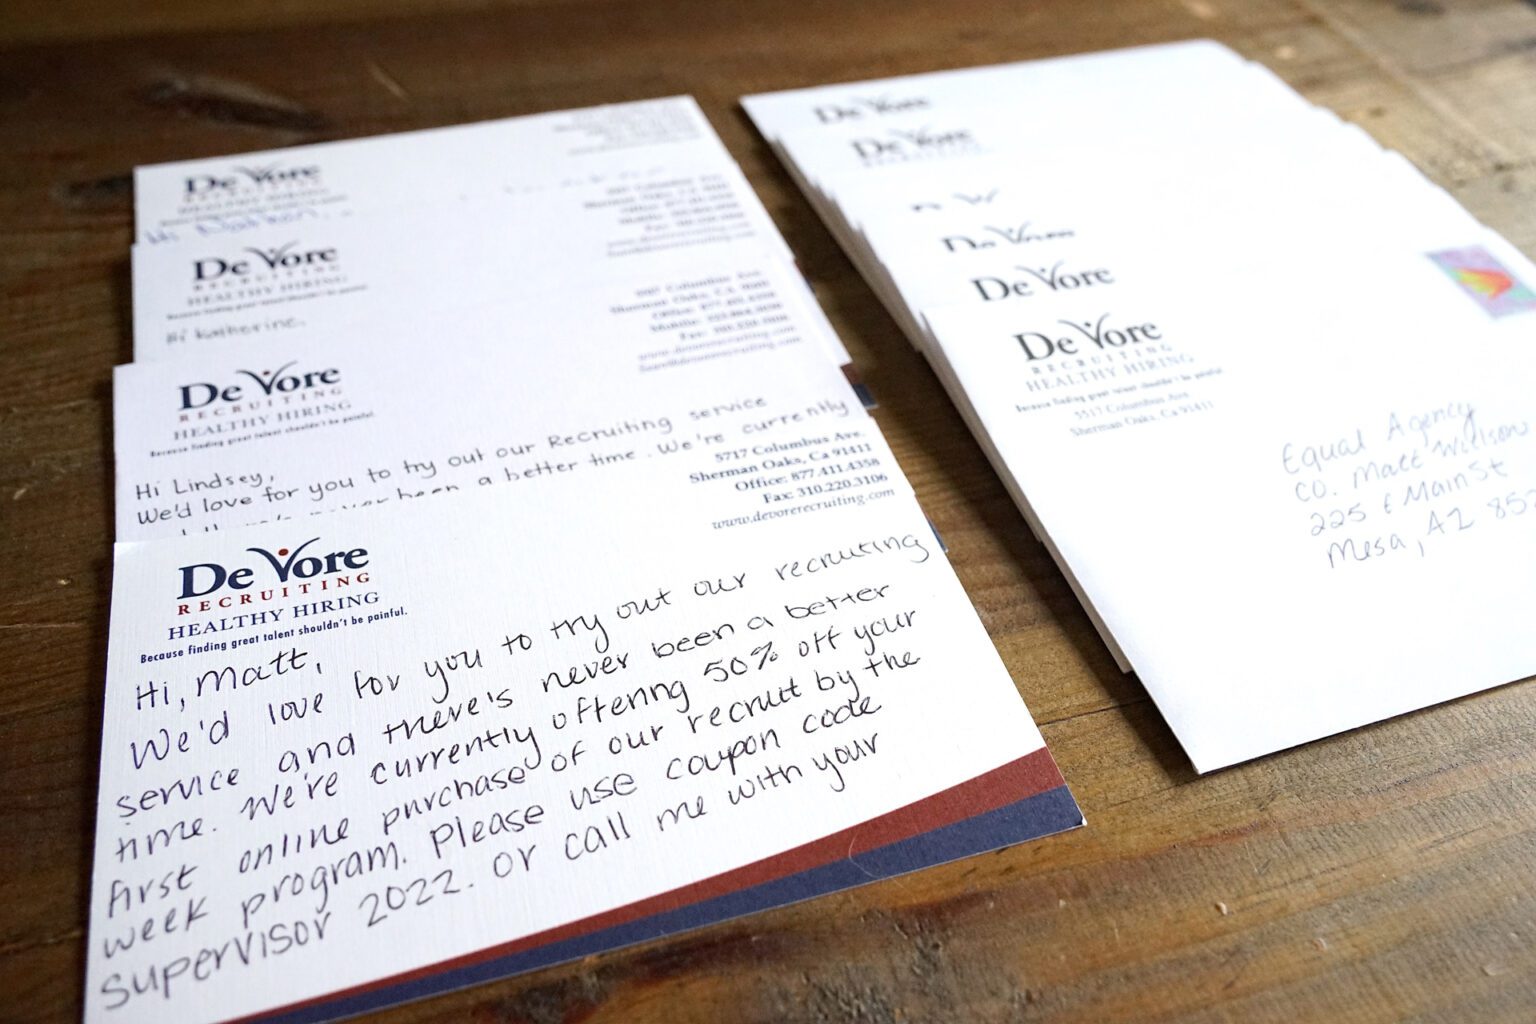 De Vore
RECRUITING
HEALTHY HIRING
De Vore
RECRUITING
HEALTHY HIRING
Hi Katherine,
De Vore
RECRUITING
HEALTHY HIRING
Because finding great talent shouldn't be painful.
Hi Lindsey,
We'd love for you to try out our Recruiting service
a better time. We're currently
5717 Columbus Ave.
Sherman Oaks, Ca 91411
Office: 877.411.4358
Fax: 310.220.3106
www.devorerecruiting.com
De Vore
RECRUITING
HEALTHY HIRING
Because finding great talent shouldn't be painful.
Hi, Matt,
We'd love for you to try out our recruiting
service and there's never been a better
time. We're currently offering 50% off your
first online purchase of our recruit by the
week program. Please use coupon code
Supervisor 2022. or call me with your
De Vore
De Vore
De Vore
De Vore
De Vore
RECRUITING
HEALTHY HIRING
Because finding great talent shouldn't be painful.
5517 Columbus Ave.
Sherman Oaks, Ca 91411
Equal Agency
CO. Matt
225 E Main St
Mesa, AZ